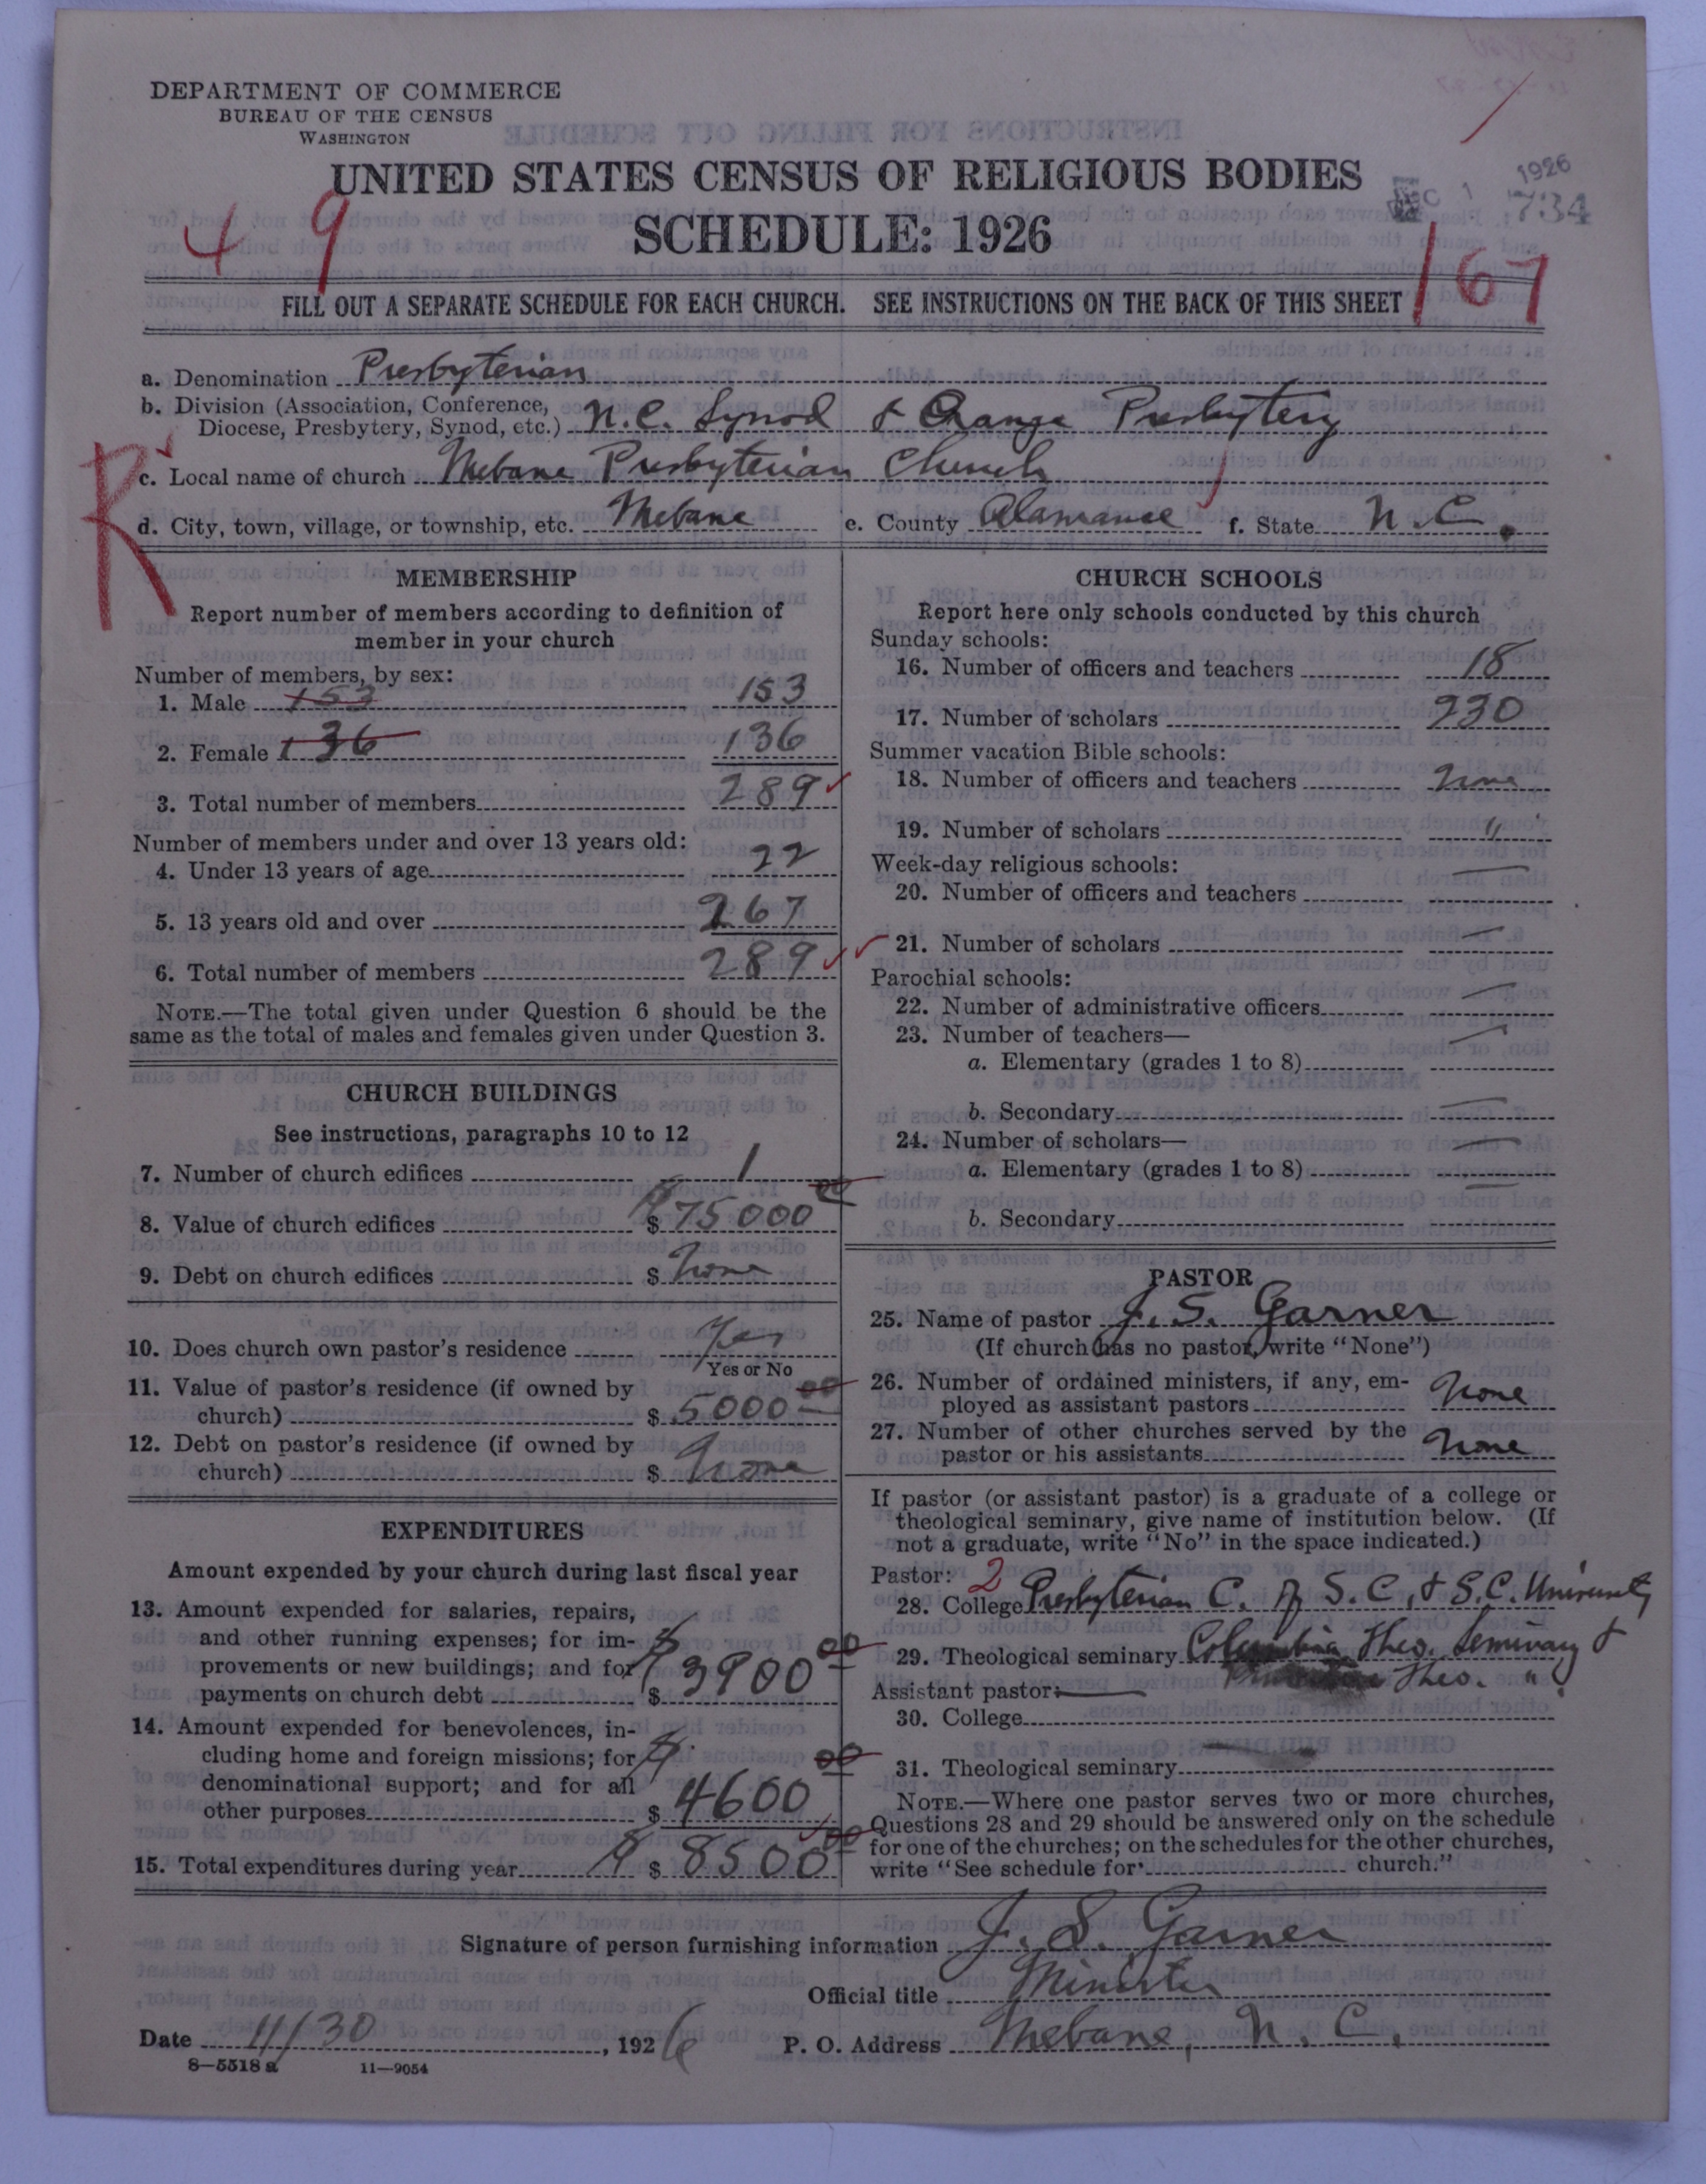 DEPARTMENT OF COMMERCE
BUREAU OF THE CENSUS
WASHINGTON
UNITED STATES CENSUS OF RELIGIOUS BODIES
SCHEDULE: 1926
1926
734
49
167
FILL OUT A SEPARATE SCHEDULE FOR EACH CHURCH. SEE INSTRUCTIONS ON THE BACK OF THIS SHEET
a. Denomination Presbyterian
b. Division (Association, Conference,
Diocese, Presbytery, Synod, etc.) N.C. Synod & Orange Presbytery
R
c. Local name of church Mebane Presbyterian Church
d. City, town, village, or township, etc. Mebane e. County Alamance f. State N.C.
MEMBERSHIP
Report number of members according to definition of
member in your church
Number of members, by sex:
1. Male 153 153
2. Female 136 136
3. Total number of members 289
Number of members under and over 13 years old:
4. Under 13 years of age 22
5. 13 years old and over 267
6. Total number of members 289
NOTE.—The total given under Question 6 should be the
same as the total of males and females given under Question 3.
CHURCH BUILDINGS
See instructions, paragraphs 10 to 12
7. Number of church edifices 1
8. Value of church edifices $ 75000 00
9. Debt on church edifices $ None
10. Does church own pastor's residence Yes
Yes or No
11. Value of pastor's residence (if owned by
church) $ 5000 00
12. Debt on pastor's residence (if owned by
church) $ None
EXPENDITURES
Amount expended by your church during last fiscal year
13. Amount expended for salaries, repairs,
and other running expenses; for im-
provements or new buildings; and for
payments on church debt $ 3900 00
14. Amount expended for benevolences, in-
cluding home and foreign missions; for
denominational support; and for all
other purposes $ 4600 00
15. Total expenditures during year $ 8500 00
CHURCH SCHOOLS
Report here only schools conducted by this church
Sunday schools:
16. Number of officers and teachers 18
17. Number of scholars 230
Summer vacation Bible schools:
18. Number of officers and teachers None
19. Number of scholars "
Week-day religious schools:
20. Number of officers and teachers —
21. Number of scholars —
Parochial schools:
22. Number of administrative officers —
23. Number of teachers—
a. Elementary (grades 1 to 8) —
b. Secondary —
24. Number of scholars—
a. Elementary (grades 1 to 8) —
b. Secondary —
PASTOR
25. Name of pastor J. S. Garner
(If church has no pastor, write "None")
26. Number of ordained ministers, if any, em-
ployed as assistant pastors None
27. Number of other churches served by the
pastor or his assistants None
If pastor (or assistant pastor) is a graduate of a college or
theological seminary, give name of institution below. (If
not a graduate, write "No" in the space indicated.)
Pastor: 2
28. College Presbyterian C. of S.C., & S.C. University
29. Theological seminary Columbia Theo. Seminary &
Theo. "
Assistant pastor: —
30. College
31. Theological seminary
NOTE.—Where one pastor serves two or more churches,
Questions 28 and 29 should be answered only on the schedule
for one of the churches; on the schedules for the other churches,
write "See schedule for church."
Signature of person furnishing information J. S. Garner
Official title Minister
Date 11/30, 1926 P. O. Address Mebane, N. C.
8—5518 a 11—9054